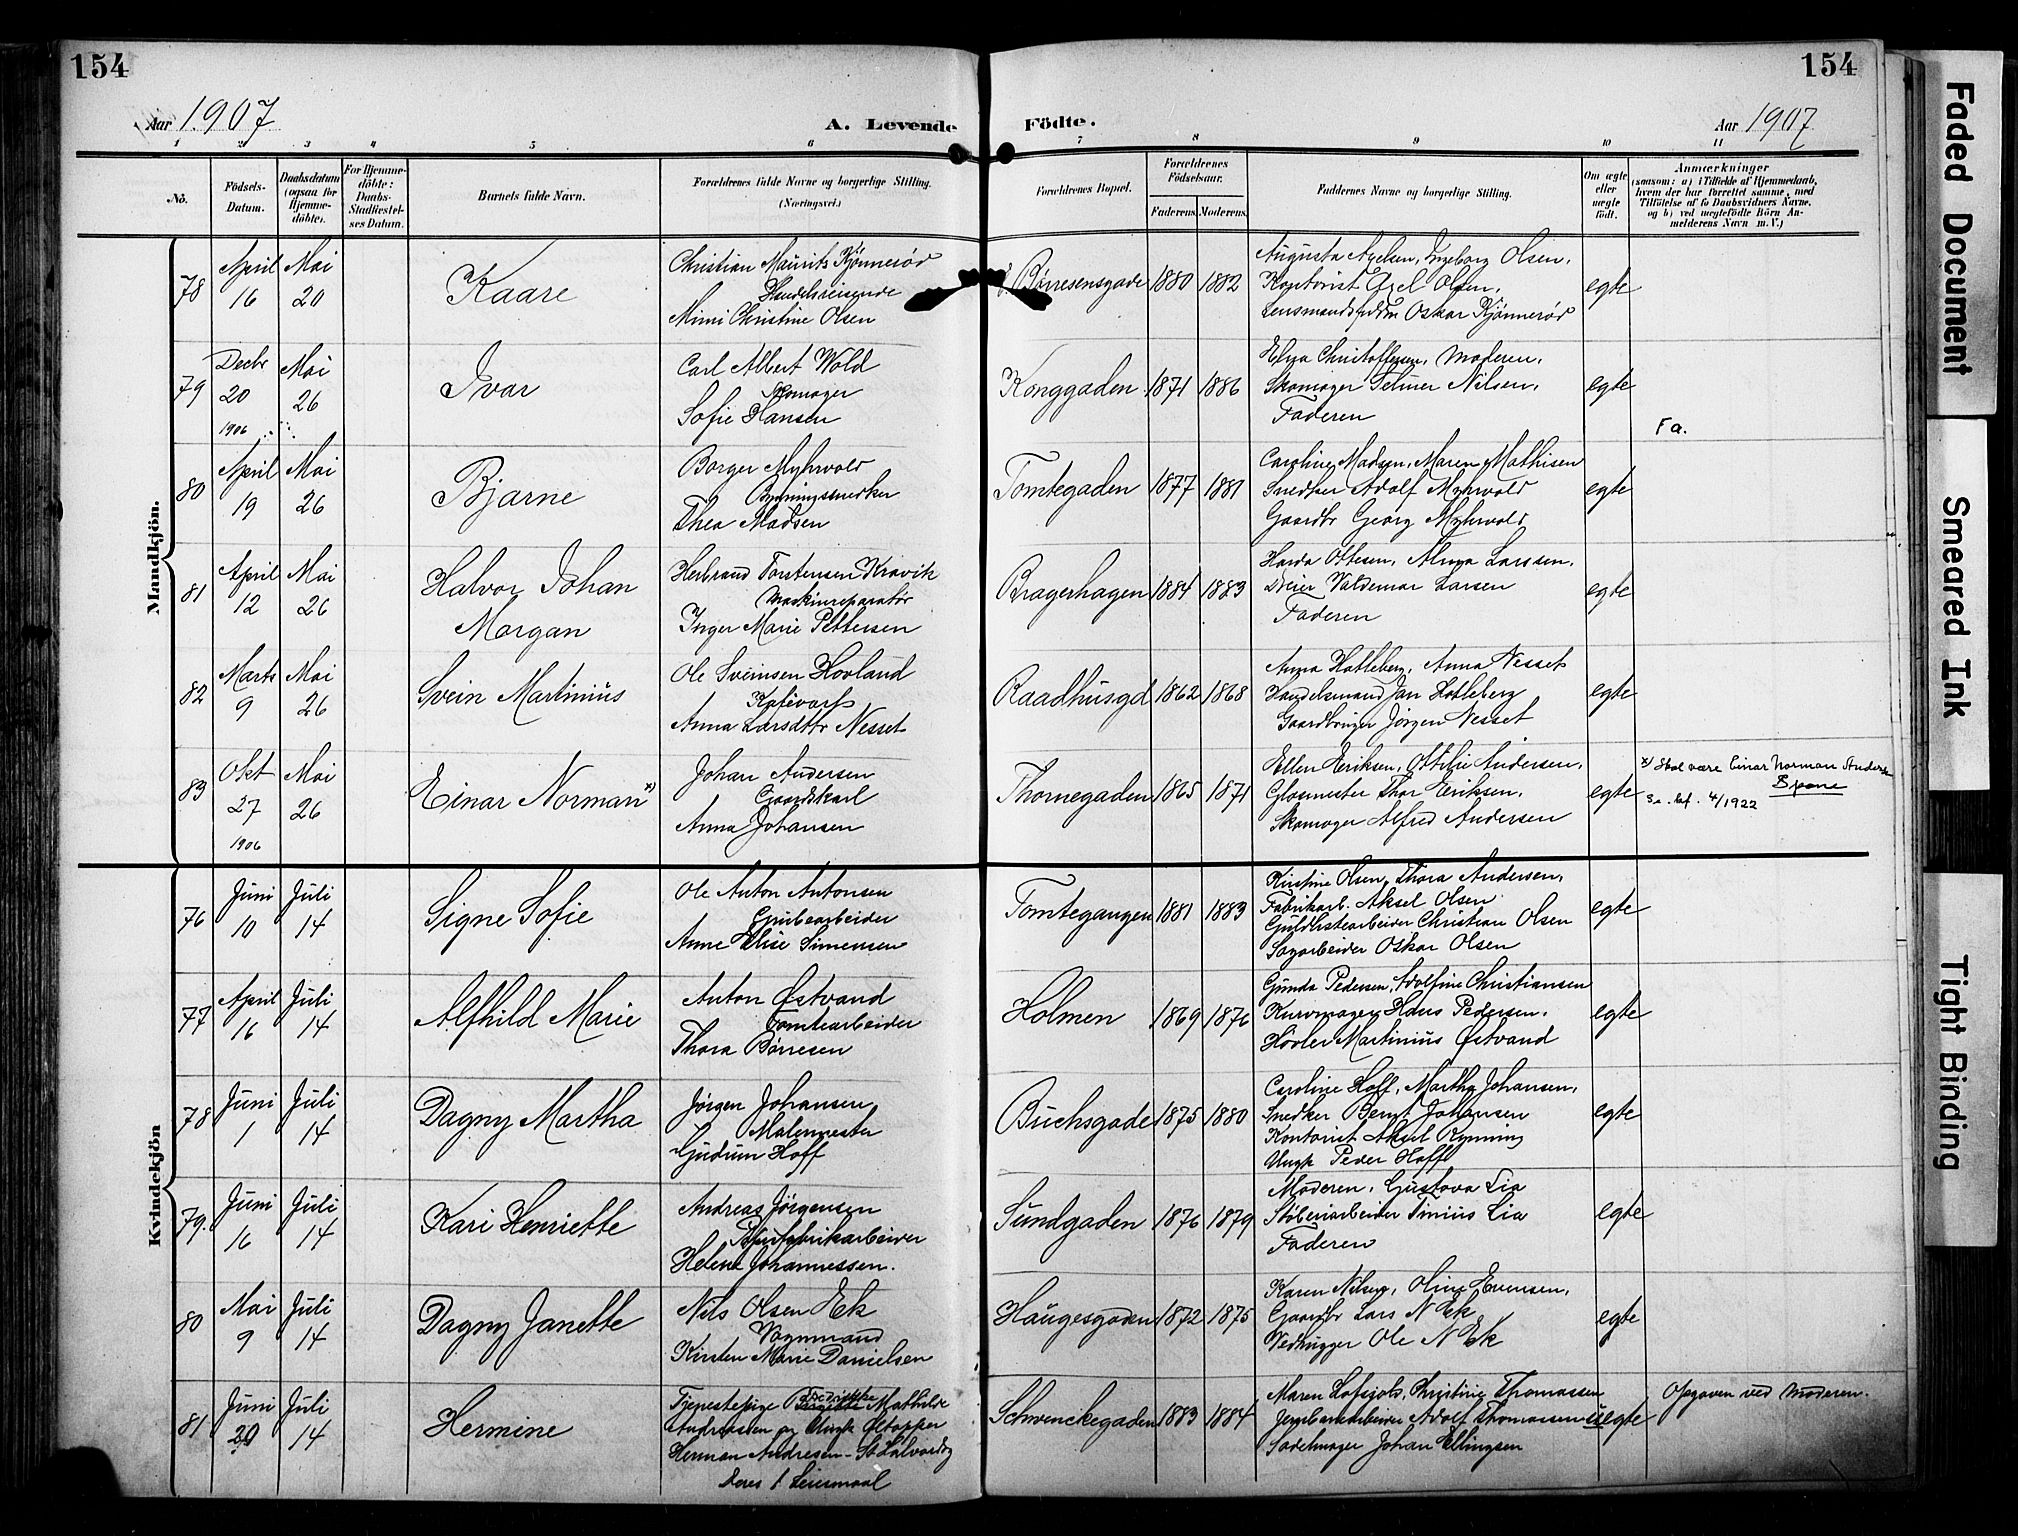 154
154
Aar 1907
A. Levende
Födte.
Aar 1907
1 2 3 4 5 6 7 8 9 10 11
No.
Födsels-
Datum.
Daabsdatum
(ogsaa for
Hjemme-
döbte).
For Hjemme-
döbte:
Daabs-
Stadfæstel-
ses Datum.
Barnets fulde Navn.
Forældrenes fulde Navne og borgerlige Stilling.
(Næringsvei.)
Forældrenes Bopæl.
Forældrenes
Födselsaar.
Faderens.
Moderens.
Faddernes Navne og borgerlige Stilling.
Om ægte
eller
uægte
födt.
Anmærkninger
(saasom: a) i Tilfælde af Hjemmedaab,
hvem der har forrettet samme, med
Tilföielse af to Daabsvidners Navne,
og b) ved uægtefödte Börn An-
melderens Navn m. V.)
Mandkjön.
78
April
16
Mai
20
Kaare
Christian Maurits Kjönnerød
Handelsreisende
Mimi Christine Olsen
Børresensgade
1880
1882
Augusta Axelsen, Ingeborg Olsen,
Kontorist Axel Olsen,
Lensmandsfuldm Oskar Kjönnerød
egte
79
Decbr
20
1906
Mai
26
Ivar
Carl Albert Wold
Skomager
Sofie Hansen
Konggaden
1871
1886
Elna Christoffersen, Moderen,
Skomager Selmer Nilsen,
Faderen
egte
Fa.
80
April
19
Mai
26
Bjarne
Borger Myhrvold
Bygningssnedker
Thea Madsen
Tomtegaden
1877
1881
Caroline Madsen, Maren Mathisen
Snedker Adolf Myhrvold
Gaardbr Georg Myhrvold
egte
81
April
12
Mai
26
Halvor Johan
Morgan
Herbrand Torstensen Kravik
Maskinreparatør
Inger Marie Pettersen
Bragerhagen
1884
1883
Harda Ottesen, Alma Larssen,
Dreier Valdemar Larsen
Faderen
egte
82
Marts
9
Mai
26
Svein Martinius
Ole Sveinsen Hovland
Kafévart
Anna Larsdtr Nesset
Raadhusgd
1862
1868
Anna Hotleberg, Anna Nesset
Handelsmand Jan Hotleberg
Gaardbruger Jørgen Nesset
egte
83
Okt
27
1906
Mai
26
Einar Norman x)
Johan Andersen
Gaardskarl
Anna Johansen
Thornegaden
1865
1871
Ellen Eriksen, Ottilie Andersen,
Glasmester Thor Eriksen,
Skomager Alfred Andersen
egte
x) Skal være Einar Norman
4/1922
Kvindekjön
76
Juni
10
Juli
14
Signe Sofie
Ole Anton Antonsen
Grubearbeider
Anne Elise Simensen
Tomtegangen
1881
1883
Kirstine Olsen, Thora Andersen,
Fabrikarb. Aksel Olsen
Guldlistearbeider Christian Olsen
Sagarbeider Oskar Olsen
egte
77
April
16
Juli
14
Alfhild Marie
Anton Østvand
Tomtearbeider
Thora Børresen
Holmen
1869
1876
Gunda Pedersen, Adolfine Christiansen
Kurvmager Hans Pedersen,
Høvler Martinius Østvand
egte
78
Juni
1
Juli
14
Dagny Martha
Jørgen Johansen
Malermester
Gudrun Hoff
Buchsgade
1875
1880
Caroline Hoff, Martha Johansen,
Snedker Bernt Johansen
Kontorist Aksel Rynning
Ungk Peder Hoff
egte
79.
Juni
16
Juli
14
Kari Henriette
Andreas Jørgensen
Papirfabrikarbeider
Helene Johannessen.
Sundgaden
1876
1879
Moderen, Gustava Lia
Støberiarbeider Tinius Lia
Faderen
egte
80
Mai
9
Juli
14
Dagny Janette
Nils Olsen Ek
Vognmand
Kirsten Marie Danielsen
Haugesgaden
1872
1875
Karen Nilsen, Oline Evensen,
Gaardbr Lars N Ek
Vedhugger Ole N Ek
egte
81
Juni
Juli
14
Hermine
Tjenestepige Mathilde
Andreasen og Ungk Øltapper
Herman Andresen - St. Halvardsg
Deres 1 Leiermaal
Schwenckegaden
1883
1884
Maren Lofsjøls, Christine Thomassen
Jernbanearbeider Adolf Thomassen
Sadelmager Johan Ellingsen
uegte
Opgaven ved Moderen.
Faded Document
Smeared Ink
Tight Binding